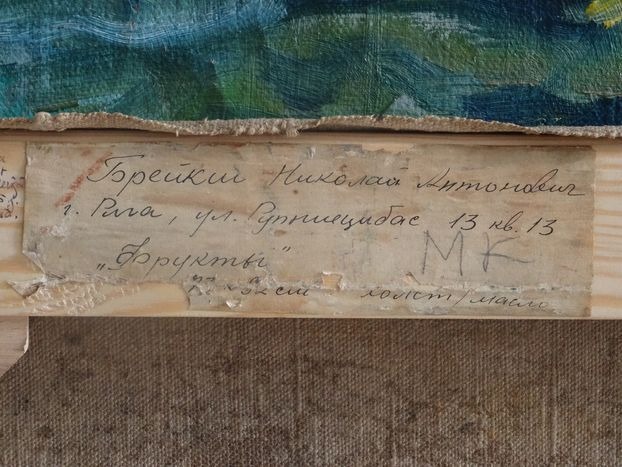 Брейкш Николай Антонович
г. Рига, ул. Рупниецибас 13 кв. 13
„Фрукты"
МК
холст/масло